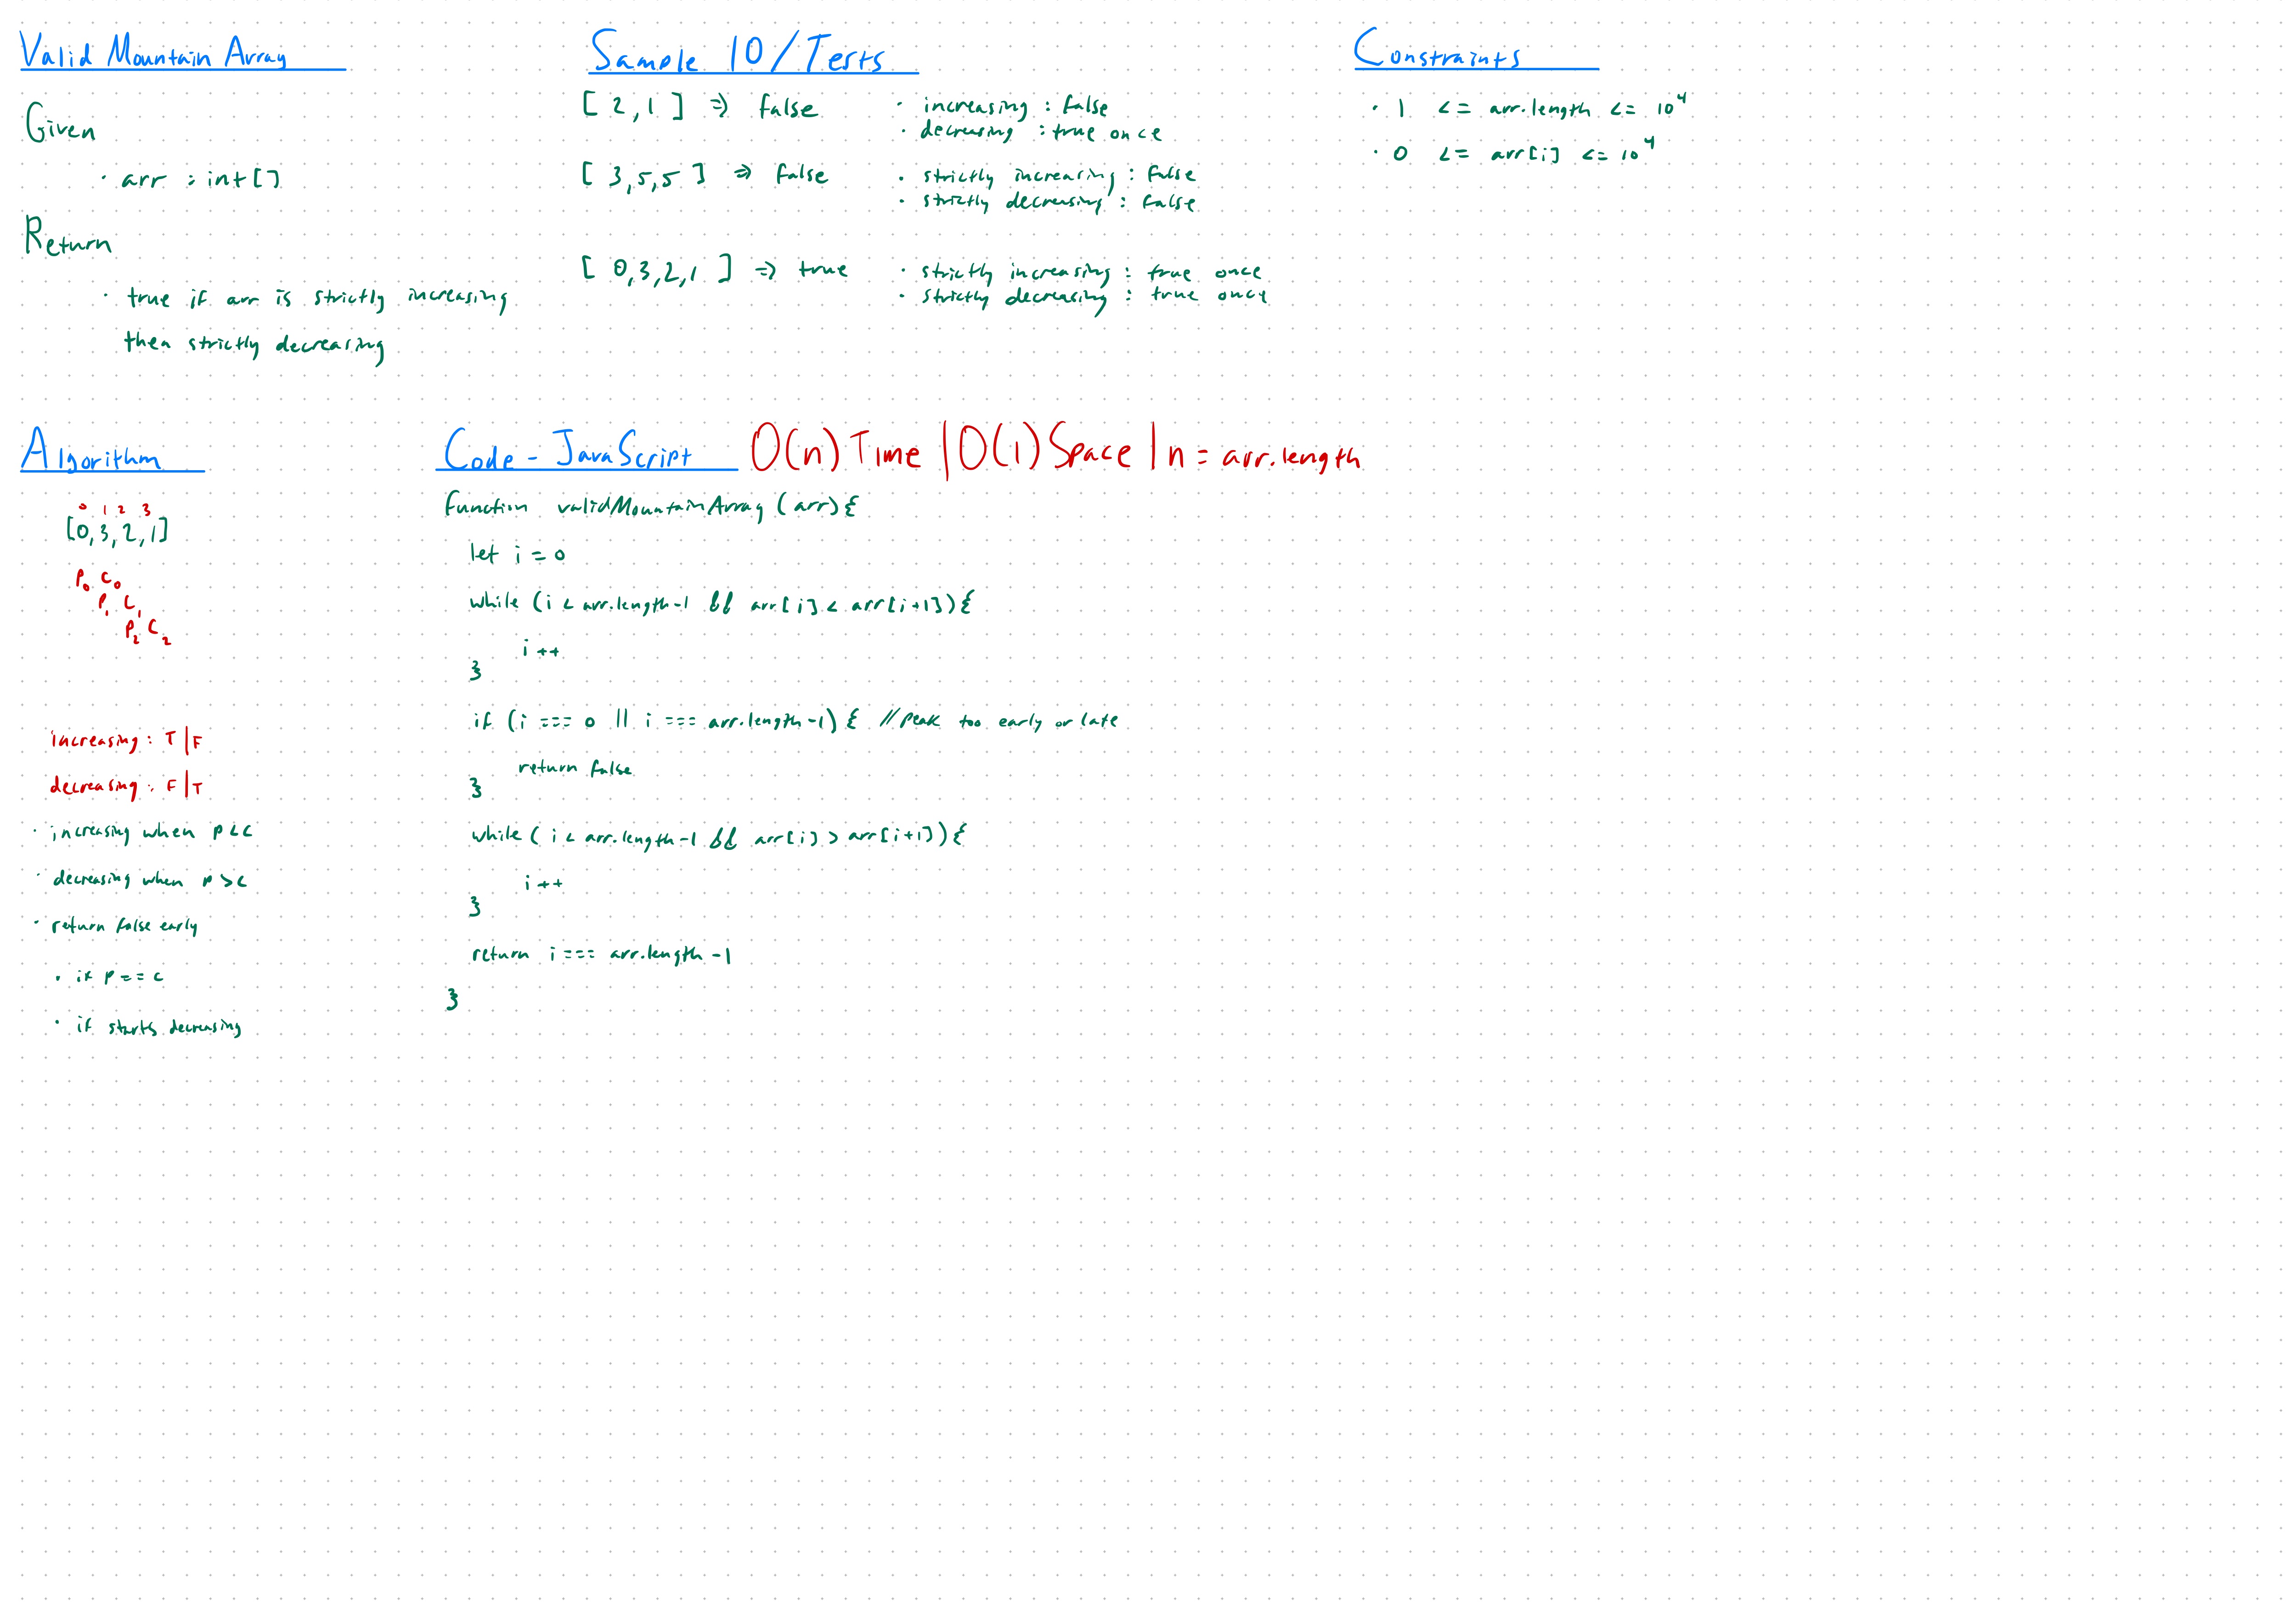 Valid Mountain Array
Given
· arr : int[]
Return
· true if arr is strictly increasing
then strictly decreasing
Sample IO/Tests
[ 2,1 ] => false
· increasing : false
· decreasing : true once
[ 3,5,5 ] => false
· strictly increasing : false
· strictly decreasing : false
[ 0,3,2,1 ] => true
· strictly increasing : true once
· strictly decreasing : true once
Constraints
· 1 <= arr.length <= 10⁴
· 0 <= arr[i] <= 10⁴
Algorithm
0 1 2 3
[0,3,2,1]
P₀ C₀
P₁ C₁
P₂ C₂
increasing : T|F
decreasing : F|T
· increasing when p<c
· decreasing when p>c
· return false early
· if p == c
· if starts decreasing
Code - JavaScript O(n) Time | O(1) Space | n = arr.length
function validMountainArray (arr){
let i = 0
while (i < arr.length-1 && arr[i] < arr[i+1]){
i++
}
if (i === 0 || i === arr.length-1) { //peak too early or late
return false
}
while ( i < arr.length-1 && arr[i] > arr[i+1]){
i++
}
return i === arr.length -1
}